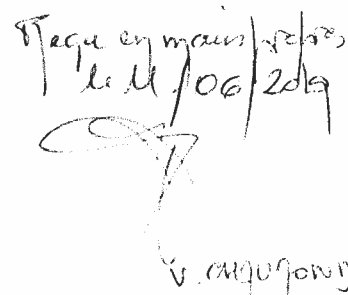 Reçu en mains propres
le 11/06/2019
V.